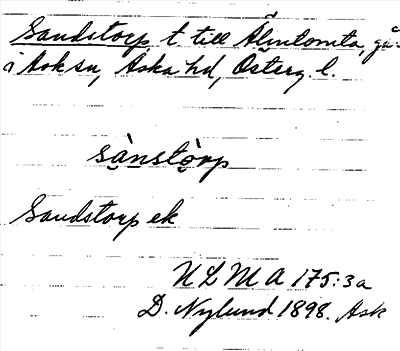 Sandstorp t till Älmtomta, gå.
i Ask sn, Aska hd, Österg. l.
sànstòrp
Sandstorp ek
N L M A 175:3a
D. Nylund 1898. Ask